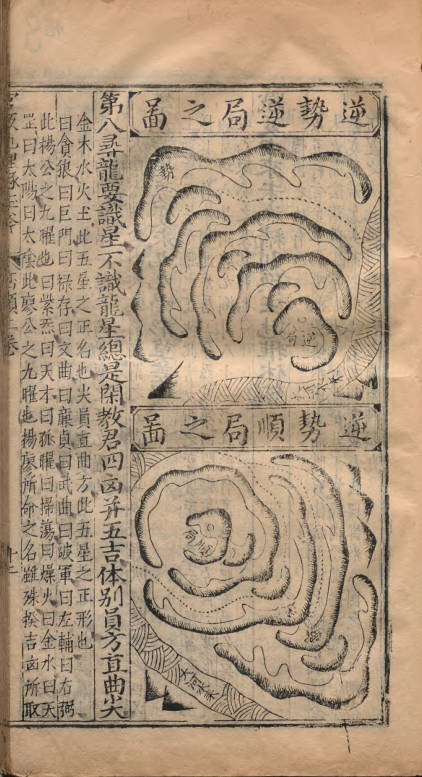 逆勢逆局之圖
勢
逆
逆勢順局之圖
第八尋龍要識星不識龍星總是閑教君四凶并五吉体别員方直曲尖
金木水火土此五星之正名也尖員直曲方此五星之正形也
曰貪狼曰巨門曰禄存曰文曲曰廉貞曰武曲曰破軍曰左輔曰右弼
此楊公之九曜也曰紫炁曰天木曰孤曜曰掃蕩曰燥火曰金水曰天
罡曰太陽曰太陰此廖公之九曜也楊廖所命之名雖殊揆吉凶所取